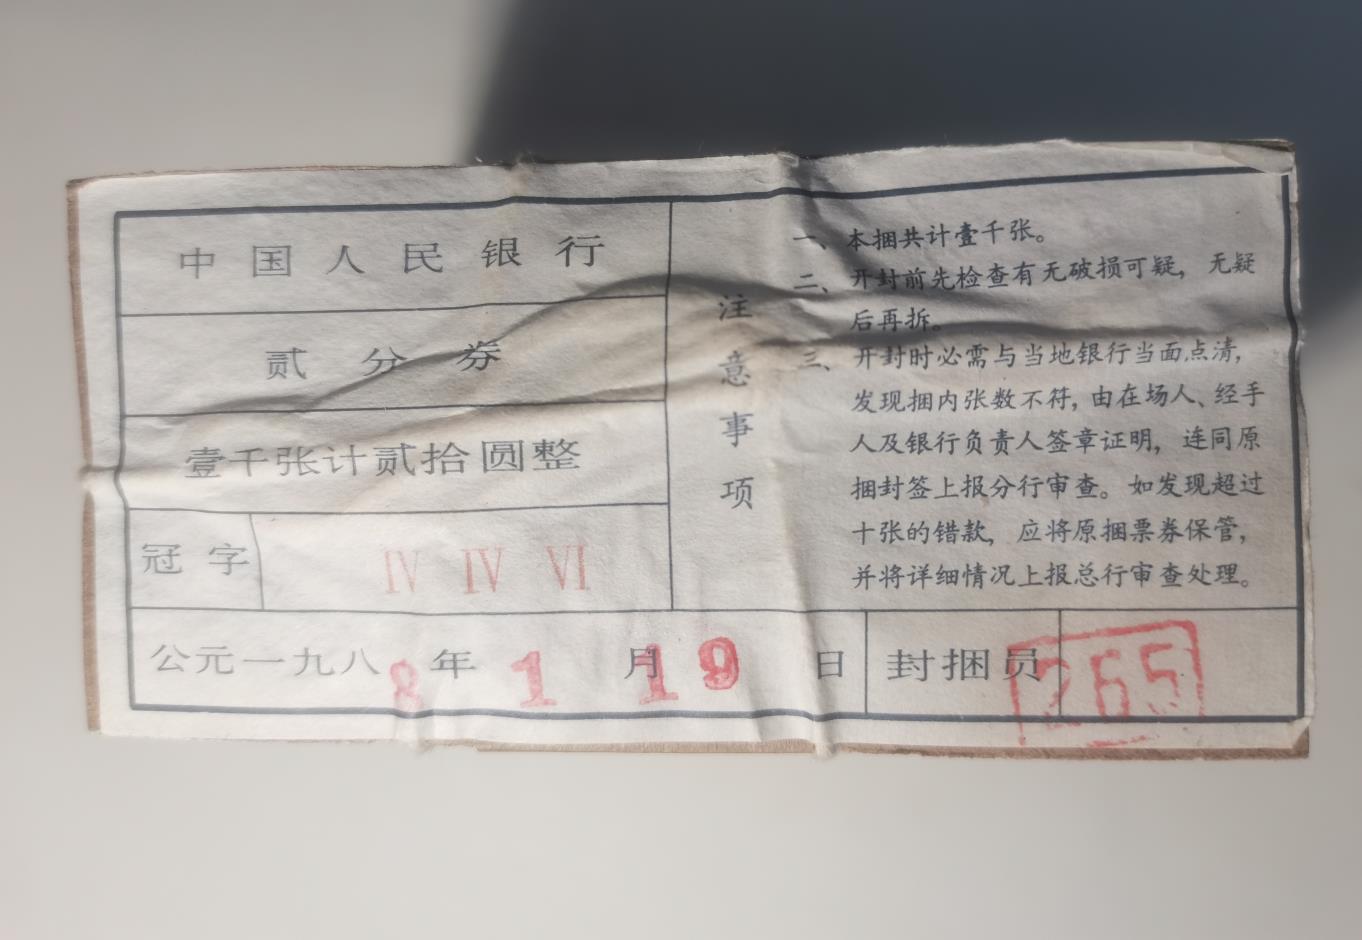 中国人民银行
贰分券
壹千张计贰拾圆整
冠字
IV IV VI
公元一九八8年1月19日
封捆员
265
注意事项
一、本捆共计壹千张。
二、开封前先检查有无破损可疑，无疑
后再拆。
三、开封时必需与当地银行当面点清，
发现捆内张数不符，由在场人、经手
人及银行负责人签章证明，连同原
捆封签上报分行审查。如发现超过
十张的错款，应将原捆票券保管，
并将详细情况上报总行审查处理。